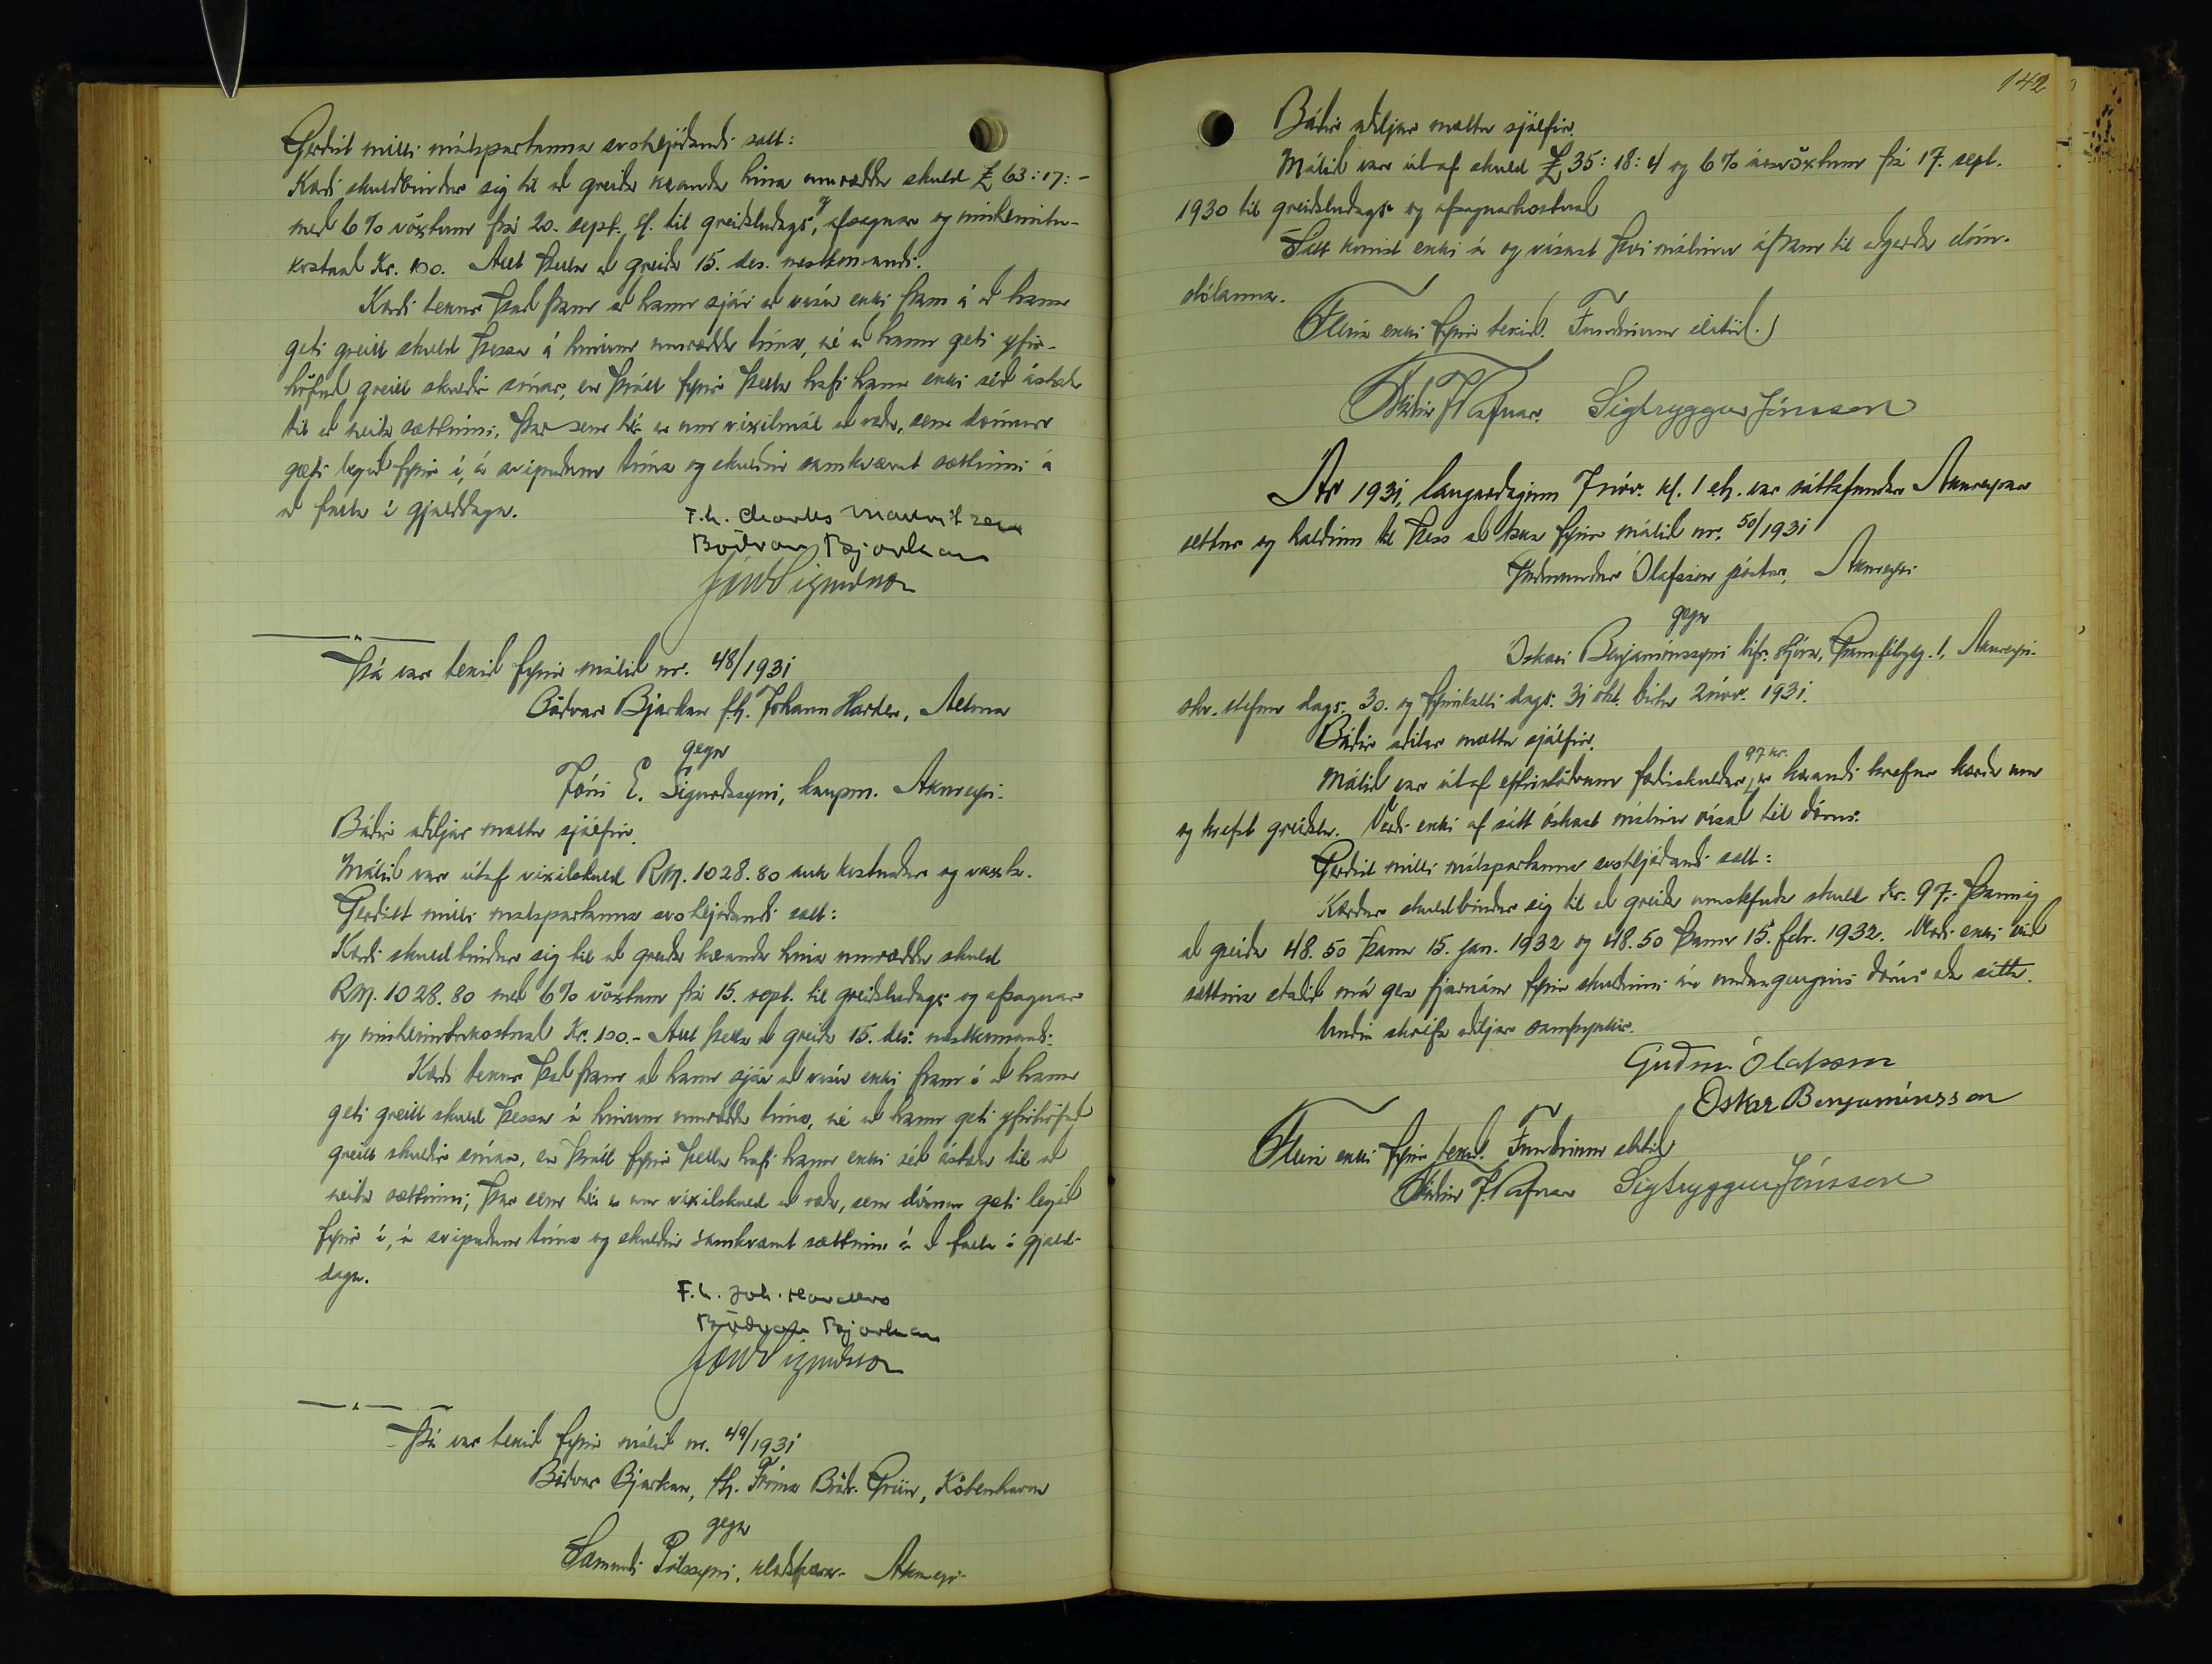 Gerðist milli málspartanna svohljóðandi sátt:
Kærði skuldbindur sig til að greiða kæranda hina umræddu skuld £ 63:17:-
með 6% vöxtum frá 20. sept. sl. til greiðsludags, og afsagnar og innheimtu-
kostnað Kr. 100. Allt þetta að greiða 15. des. næstkomandi.
Kærði tekur það fram að hann sjái að vísu ekki fram á að hann
geti greitt skuld þessa á hinum umrædda tíma, né að hann geti yfir-
höfuð greitt skuldir sínar, en þrátt fyrir þetta hafi hann ekki séð ástæðu
til að neita sættinni, þar sem hér er um víxilmál að ræða, sem dómur
gæti legið fyrir í, á svipuðum tíma og skuldin samkvæmt sættinni á
að falla í gjalddaga.
F.h. Charles Mauritzen
Böðvar Bjarkan
Jón E Sigurðsson
Þá var tekið fyrir málið nr. 48/1931
Böðvar Bjarkan f.h. Johann Harder, Altona
gegn
Jóni E. Sigurðssyni, kaupm. Akureyri.
Báðir aðiljar mættu sjálfir.
Málið var útaf víxilskuld RM. 1028.80 auk kostnaðar og vaxta.
Gerðist milli málspartanna svohljóðandi sátt:
Kærði skuldbindur sig til að greiða kæranda hina umræddu skuld
RM. 1028.80 með 6% vöxtum frá 15. sept. til greiðsludags og afsagnar
og innheimtukostnað Kr. 100.- Allt þetta að greiða 15. des. næstkomandi.
Kærði tekur það fram að hann sjái að vísu ekki fram á að hann
geti greitt skuld þessa á hinum umrædda tíma, né að hann geti yfirhöfuð
greitt skuldir sínar, en þrátt fyrir þetta hafi hann ekki séð ástæðu til að
neita sættinni, þar sem hér er um víxilskuld að ræða, sem dómur gæti legið
fyrir í, á svipuðum tíma og skuldin samkvæmt sættinni á að falla í gjald-
daga.
F.h. Joh. Harders
Böðvar Bjarkan
Jón E Sigurðsson
Þá var tekið fyrir málið nr. 49/1931
Böðvar Bjarkan, f.h. Firma Brdr. Grün, Köbenhavn
gegn
Sæmundi Pálssyni, klæðskera- Akureyri-
142
Báðir aðiljar mættu sjálfir.
Málið var útaf skuld £ 35:18:4 og 6% ársvöxtum frá 17. sept.
1930 til greiðsludags og afsagnarkostnað
Sátt komst ekki á og vísast því málinu áfram til aðgerða dóm-
stólanna.
Fleira ekki fyrir tekið. Fundinum slitið.
Friðrik J. Rafnar. Sigtryggur Jónsson
Ár 1931, laugardaginn 7 nóv. kl. 1 eh. var sáttafundur Akureyrar
settur og haldinn til þess að taka fyrir málið nr. 50/1931
Guðmundur Ólafsson póstur, Akureyri
gegn
Óskari Benjamínssyni bifr.stjóra, Grænfélagsg. 1, Akureyri.
skv. stefnu dags. 30. og fyrirkalli dags. 31 okt. birtu 2 nóv. 1931.
Báðir aðilar mættu sjálfir.
Málið var útaf eftirstöðvum fæðisskuldar, 97 kr. er kærandi krefur kærða um
og krefst greiðslu. Verði ekki af sátt óskast málinu vísað til dóms.
Gerðist milli málspartanna svohljóðandi sátt:
Kærður skuldbindur sig til að greiða umstefnda skuld kr. 97.- þannig
að greiða 48.50 þann 15. jan. 1932 og 48.50 þann 15. febr. 1932. Verði ekki við
sættina staðið má gera fjárnám fyrir skuldinni án undangengins dóms eða sáttar.
Undir skrifa aðiljar samþykkir.
Guðm. Ólafsson
Óskar Benjamínsson
Fleira ekki fyrir tekið. Fundinum slitið
Friðrik J. Rafnar Sigtryggur Jónsson